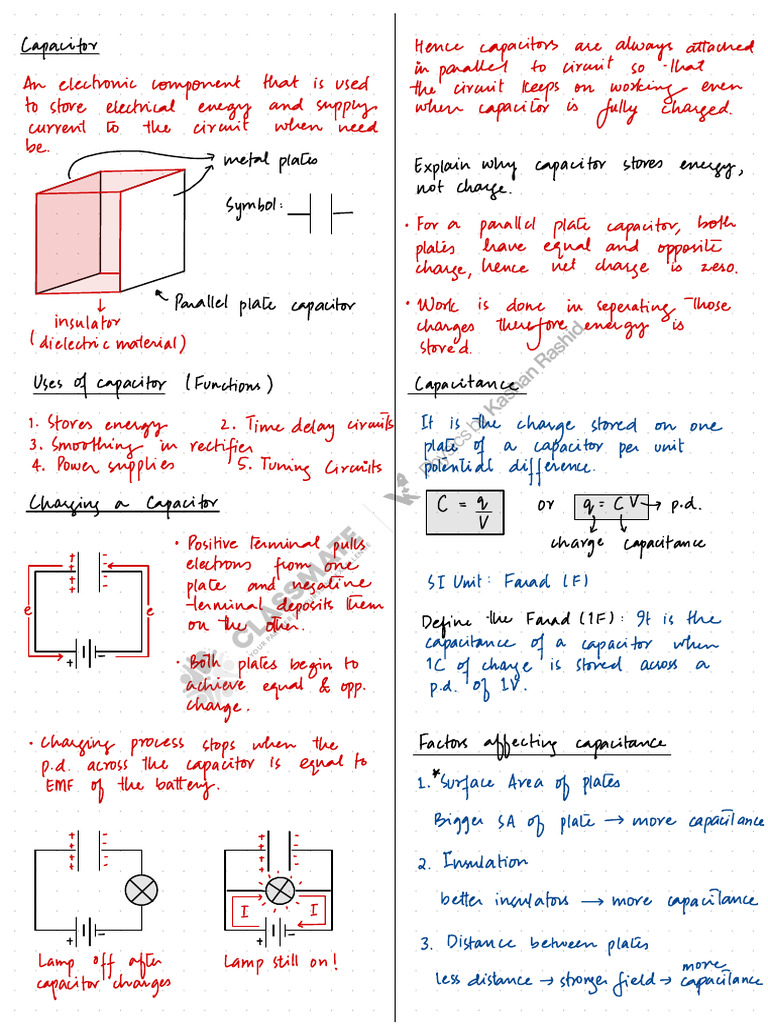 Capacitor
An electronic component that is used
to store electrical energy and supply
current to the circuit when need
be.
metal plates
Symbol:
Parallel plate capacitor
insulator
(dielectric material)
Uses of capacitor (Functions)
1. Stores energy 2. Time delay circuits
3. Smoothing in rectifier
4. Power supplies 5. Tuning Circuits
Charging a Capacitor
• Positive terminal pulls
electrons from one
plate and negative
terminal deposits them
on the other.
e e
+ -
• Both plates begin to
achieve equal & opp.
charge.
• Charging process stops when the
p.d. across the capacitor is equal to
EMF of the battery.
I I
+ - + -
Lamp off after
capacitor charges
Lamp still on!
Hence capacitors are always attached
in parallel to circuit so that
the circuit keeps on working even
when capacitor is fully charged.
Explain why capacitor stores energy,
not charge.
• For a parallel plate capacitor, both
plates have equal and opposite
charge, hence net charge is zero.
• Work is done in seperating those
charges therefore energy is
stored.
Capacitance
It is the charge stored on one
plate of a capacitor per unit
potential difference.
C = q/V or q = CV → p.d.
charge capacitance
SI Unit: Farad (F)
Define the Farad (1F): It is the
capacitance of a capacitor when
1C of charge is stored across a
p.d. of 1V.
Factors affecting capacitance
1.* Surface Area of plates
Bigger SA of plate → more capacitance
2. Insulation
better insulators → more capacitance
3. Distance between plates
less distance → stronger field → more capacitance
CLASSMATE
Physics by Kashan Rashid